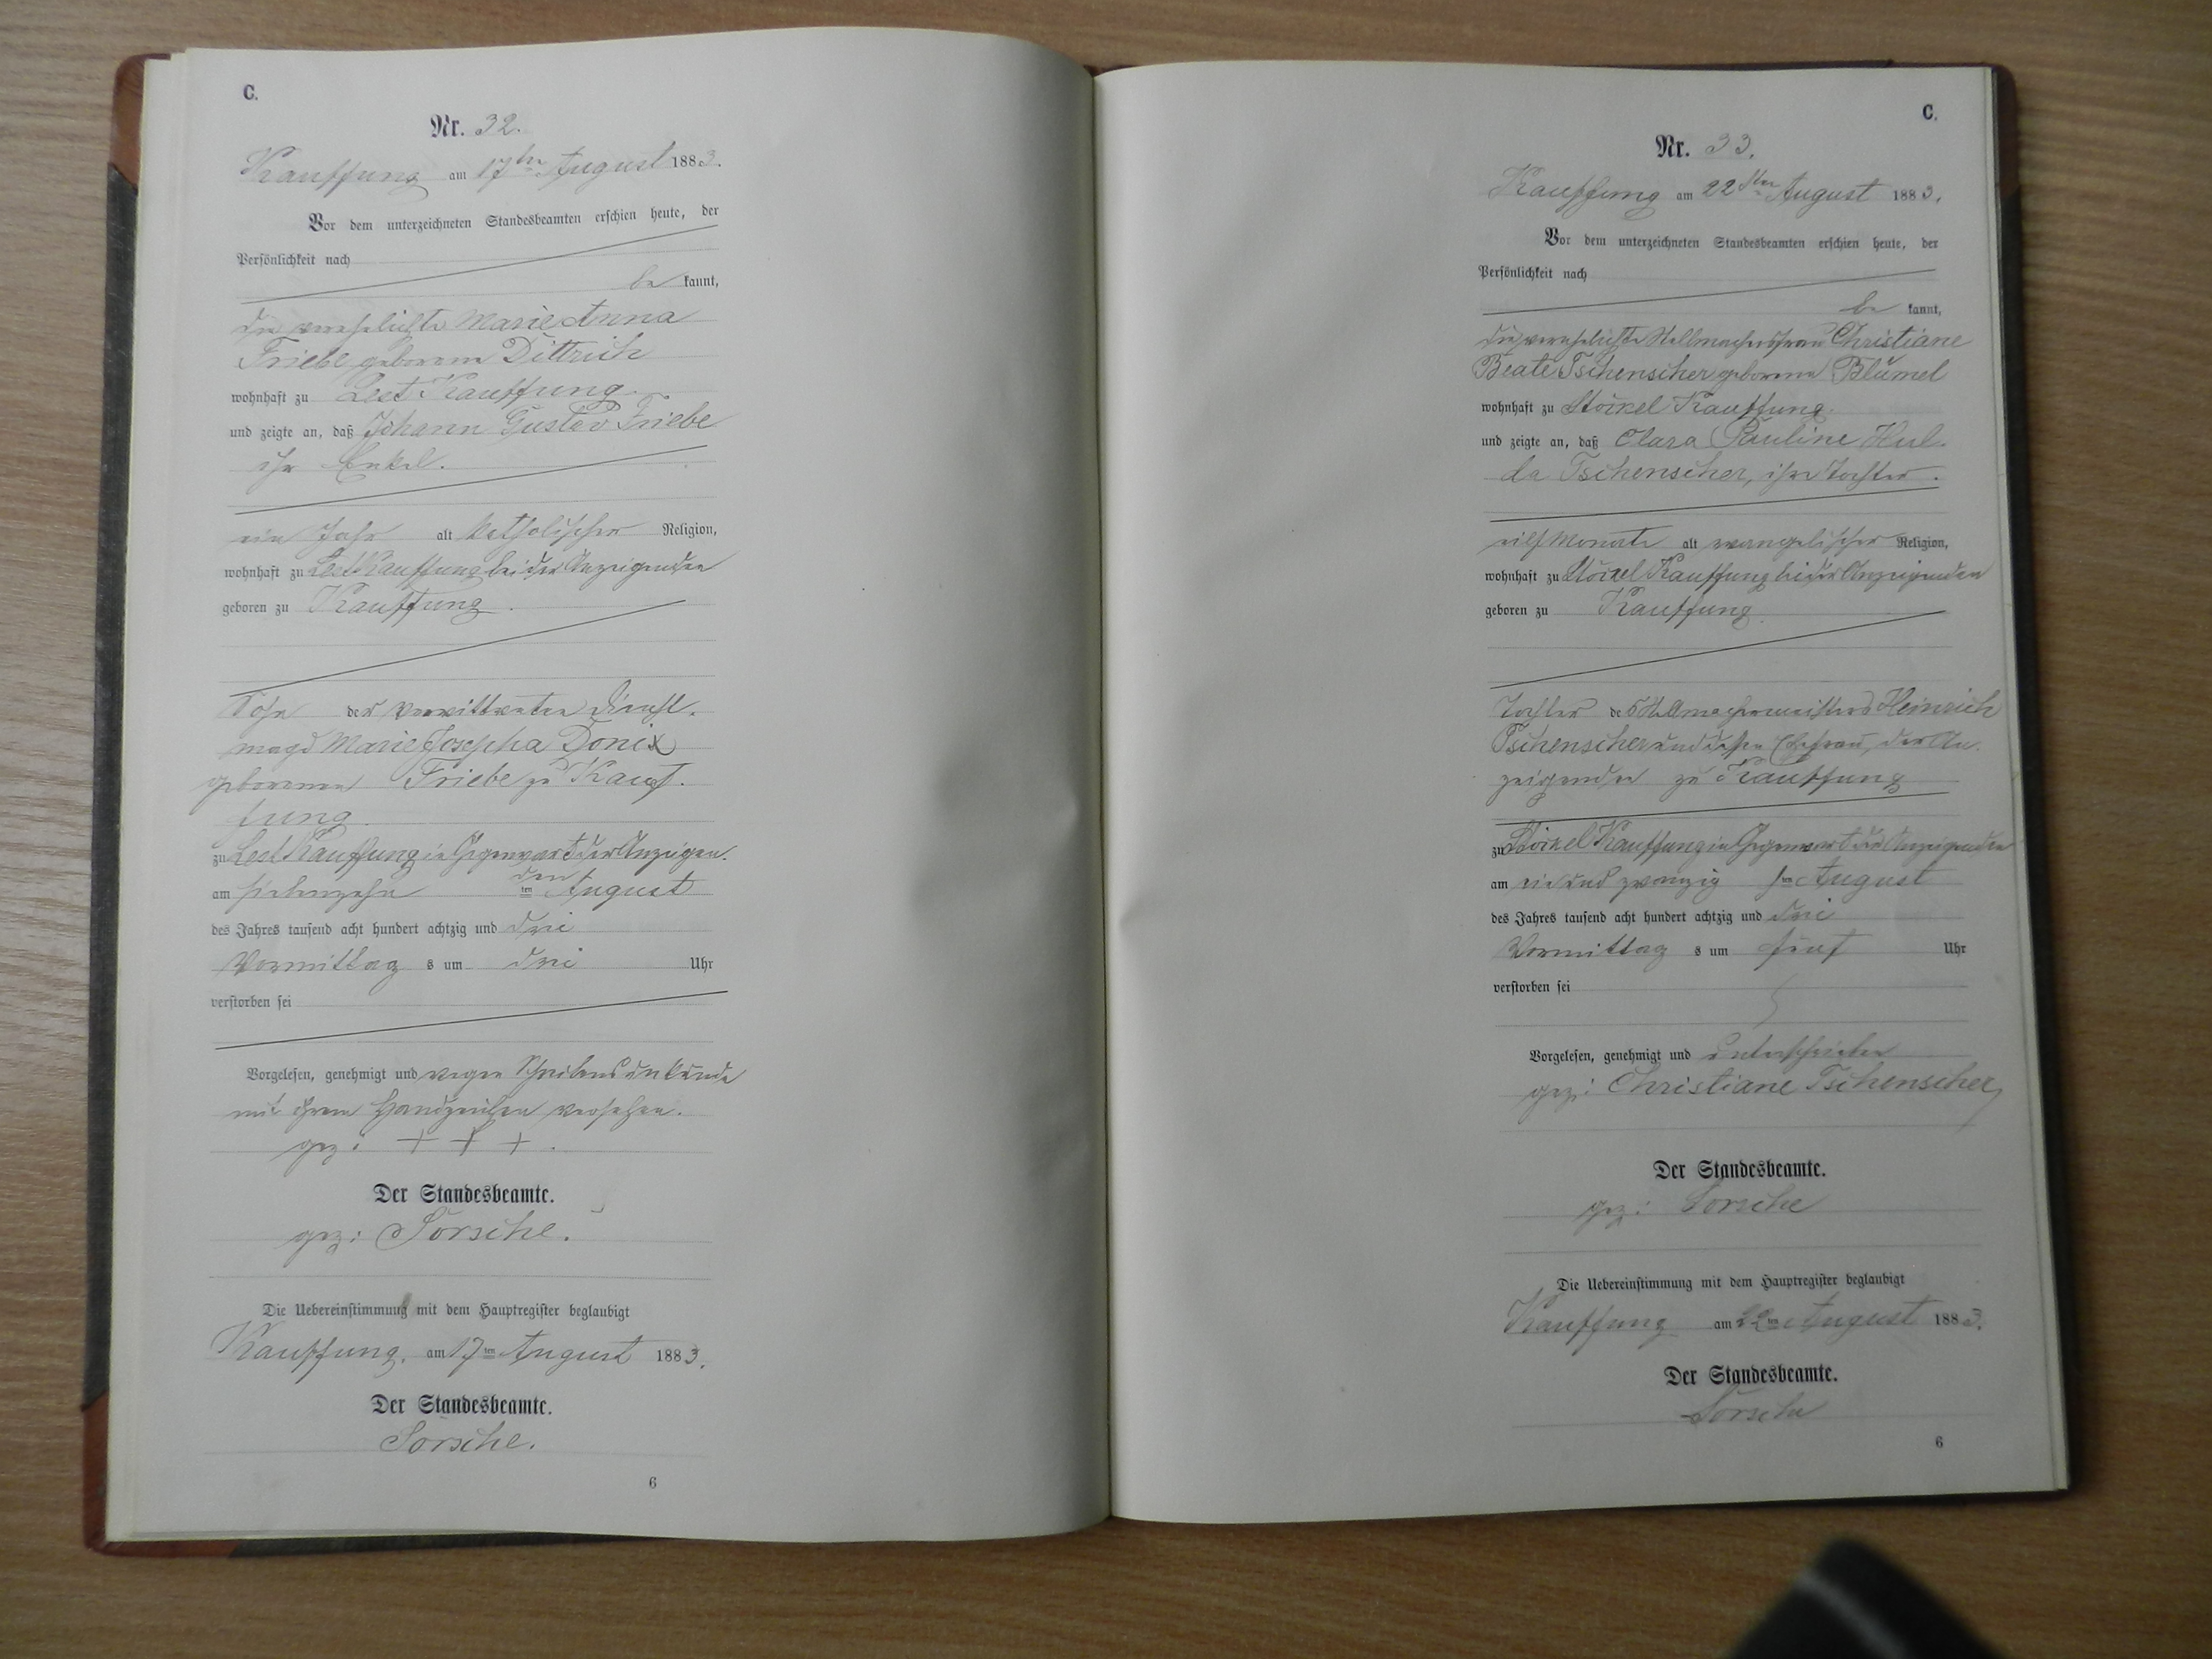 C.
Nr. 32.
Kauffung am 17ten August 1883.
Vor dem unterzeichneten Standesbeamten erschien heute, der
Persönlichkeit nach
be kannt,
die verehelichte Marie Anna
Friebe geborene Dittrich
wohnhaft zu Lest Kauffung
und zeigte an, daß Johann Gustav Friebe
ihr Enkel.
ein Jahr alt katholischer Religion,
wohnhaft zu Lest Kauffung bei der Anzeigenden
geboren zu Kauffung.
Sohn der verwittweten Dienst-
magd Marie Josepha Donix
geborenen Friebe zu Kauf-
fung
zu Lest Kauffung in Gegenwart der Anzeigen-
den
am siebenzehn ten August
des Jahres tausend acht hundert achtzig und drei
Vormittag s um drei Uhr
verstorben sei
Vorgelesen, genehmigt und wegen Schreibensunkunde
mit ihrem Handzeichen versehen.
gez: + + +.
Der Standesbeamte.
gez: Sorsche.
Die Uebereinstimmung mit dem Hauptregister beglaubigt
Kauffung, am 17ten August 1883.
Der Standesbeamte.
Sorsche.
6
C.
Nr. 33.
Kauffung am 22sten August 1883.
Vor dem unterzeichneten Standesbeamten erschien heute, der
Persönlichkeit nach
be kannt,
die verehelichte Stellmachersfrau Christiane
Beate Tschenscher geborene Blümel
wohnhaft zu Stöckel Kauffung
und zeigte an, daß Clara Pauline Hul-
da Tschenscher, ihre Tochter.
eilf Monate alt evangelischer Religion,
wohnhaft zu Stöckel Kauffung bei der Anzeigenden
geboren zu Kauffung
Tochter des Stellmachermeisters Heinrich
Tschenscher und dessen Ehefrau, der An-
zeigenden zu Kauffung
zu Stöckel Kauffung in Gegenwart der Anzeigenden
am ein und zwanzig sten August
des Jahres tausend acht hundert achtzig und drei
Vormittag s um fünf Uhr
verstorben sei
Vorgelesen, genehmigt und unterschrieben
gez: Christiane Tschenscher
Der Standesbeamte.
gez: Sorsche
Die Uebereinstimmung mit dem Hauptregister beglaubigt
Kauffung am 22ten August 1883.
Der Standesbeamte.
Sorsche
6